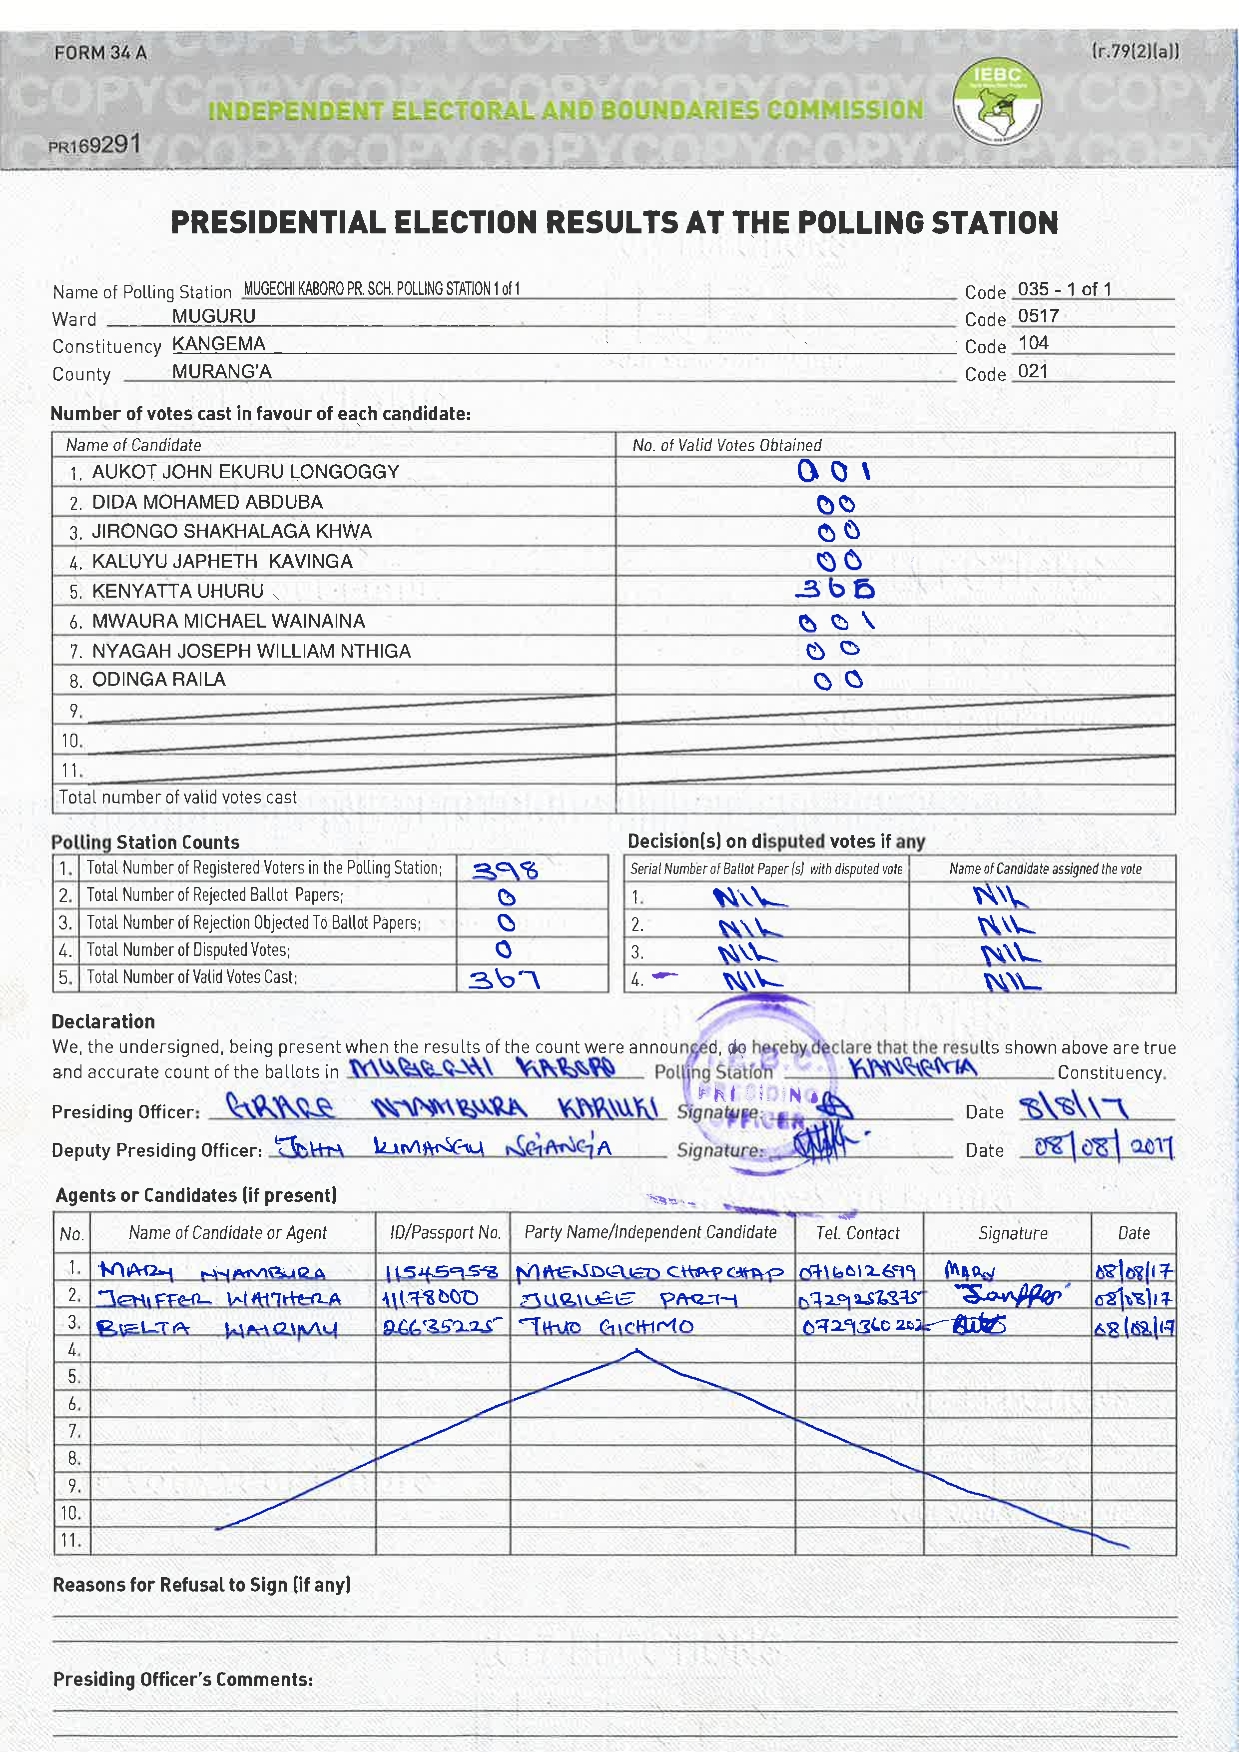 FORM 34 A
(r.79(2)(a))
IEBC
INDEPENDENT ELECTORAL AND BOUNDARIES COMMISSION
PR169291
PRESIDENTIAL ELECTION RESULTS AT THE POLLING STATION
Name of Polling Station MUGECHI KABORO PR. SCH. POLLING STATION 1 of 1 Code 035 - 1 of 1
Ward MUGURU Code 0517
Constituency KANGEMA Code 104
County MURANG'A Code 021
Number of votes cast in favour of each candidate:
Name of Candidate No. of Valid Votes Obtained
1. AUKOT JOHN EKURU LONGOGGY 001
2. DIDA MOHAMED ABDUBA 00
3. JIRONGO SHAKHALAGA KHWA 00
4. KALUYU JAPHETH KAVINGA 00
5. KENYATTA UHURU 365
6. MWAURA MICHAEL WAINAINA 001
7. NYAGAH JOSEPH WILLIAM NTHIGA 00
8. ODINGA RAILA 00
9.
10.
11.
Total number of valid votes cast
Polling Station Counts
1. Total Number of Registered Voters in the Polling Station; 398
2. Total Number of Rejected Ballot Papers; 0
3. Total Number of Rejection Objected To Ballot Papers; 0
4. Total Number of Disputed Votes; 0
5. Total Number of Valid Votes Cast; 367
Decision(s) on disputed votes if any
Serial Number of Ballot Paper (s) with disputed vote Name of Candidate assigned the vote
1. NIL NIL
2. NIL NIL
3. NIL NIL
4. NIL NIL
Declaration
We, the undersigned, being present when the results of the count were announced, do hereby declare that the results shown above are true
and accurate count of the ballots in MUGECHI KABORO Polling Station KANGEMA Constituency.
I.E.B.C.
PRESIDING
OFFICER
Presiding Officer: GRACE NYAMBURA KARIUKI Signature: Date 8/8/17
Deputy Presiding Officer: JOHN KIMANGU NG'ANG'A Signature: Date 08/08/2017
Agents or Candidates (if present)
No. Name of Candidate or Agent ID/Passport No. Party Name/Independent Candidate Tel. Contact Signature Date
1. MARY NYAMBURA 11545958 MAENDELEO CHAPCHAP 0716012699 MARY 08/08/17
2. JENIFFER WAITHERA 11178000 JUBILEE PARTY 0729256375 08/08/17
3. BIELTA WAIRIMU 26635225 THUO GICHIMO 0729360202 08/08/17
4.
5.
6.
7.
8.
9.
10.
11.
Reasons for Refusal to Sign (if any)
Presiding Officer's Comments: